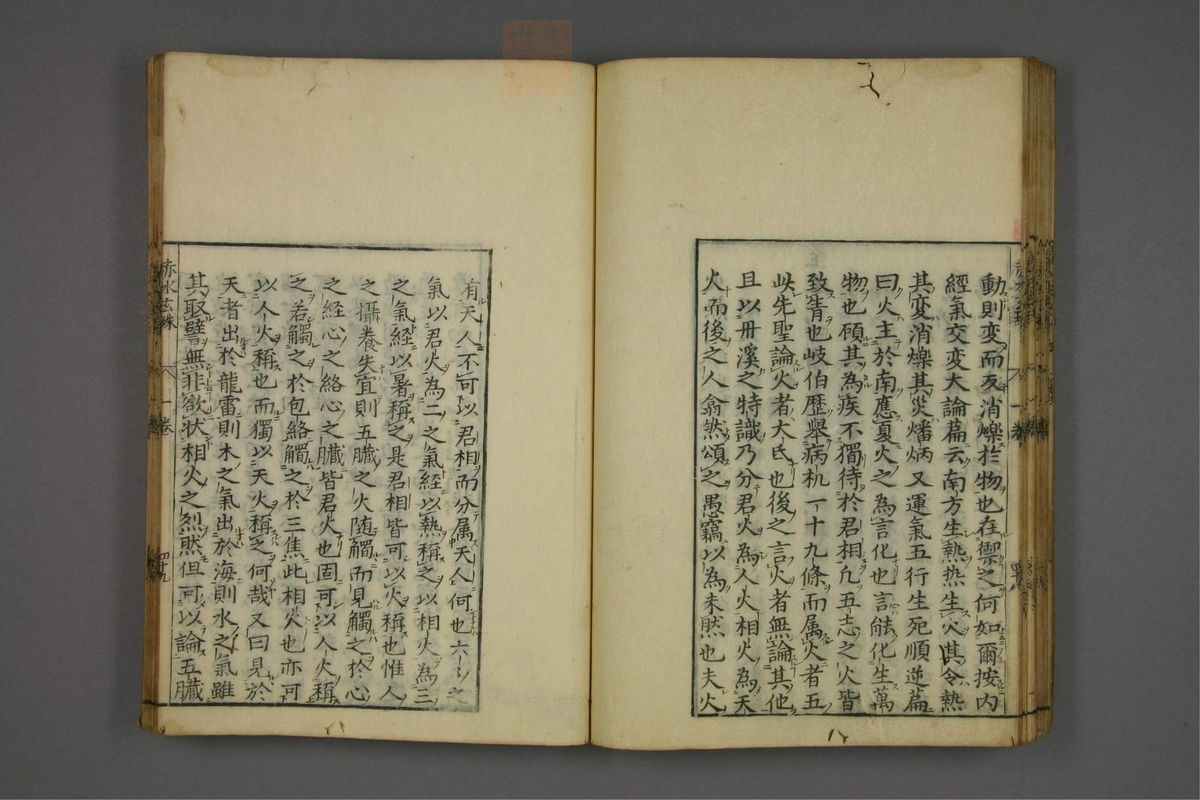 動則変而反消爍於物也在禦之何如爾按内
經氣交変大論萹云南方生熱熱生火其令熱
其変消爍其災燔焫又運氣五行生死順逆萹
曰火主於南應夏火之為言化也言能化生萬
物也頋其為疾不獨待於君相凢五志之火皆
致眚也岐伯歴舉病机一十九條而属火者五
此先聖論火者大氐也後之言火者無論其他
且以丹溪之特識乃分君火為人火相火為天
火而後之人翕然頌之愚竊以為未然也夫火
有天人不可以君相而分属天人何也六氣之
氣以君火為二之氣経以熱稱之以相火為三
之氣経以暑稱之是君相皆可以火稱也惟人
之攝養失宜則五臓之火随觸而見觸之於心
之経心之絡心之臓皆君火也固可以人火稱
之若觸之於包絡觸之於三焦此相火也亦可
以人火稱也而獨以天火稱之何哉又曰見於
天者出於龍雷則木之氣出於海則水之氣雖
其取譬無非欲状相火之烈然但可以論五臓
赤水玄珠
一卷
四十九